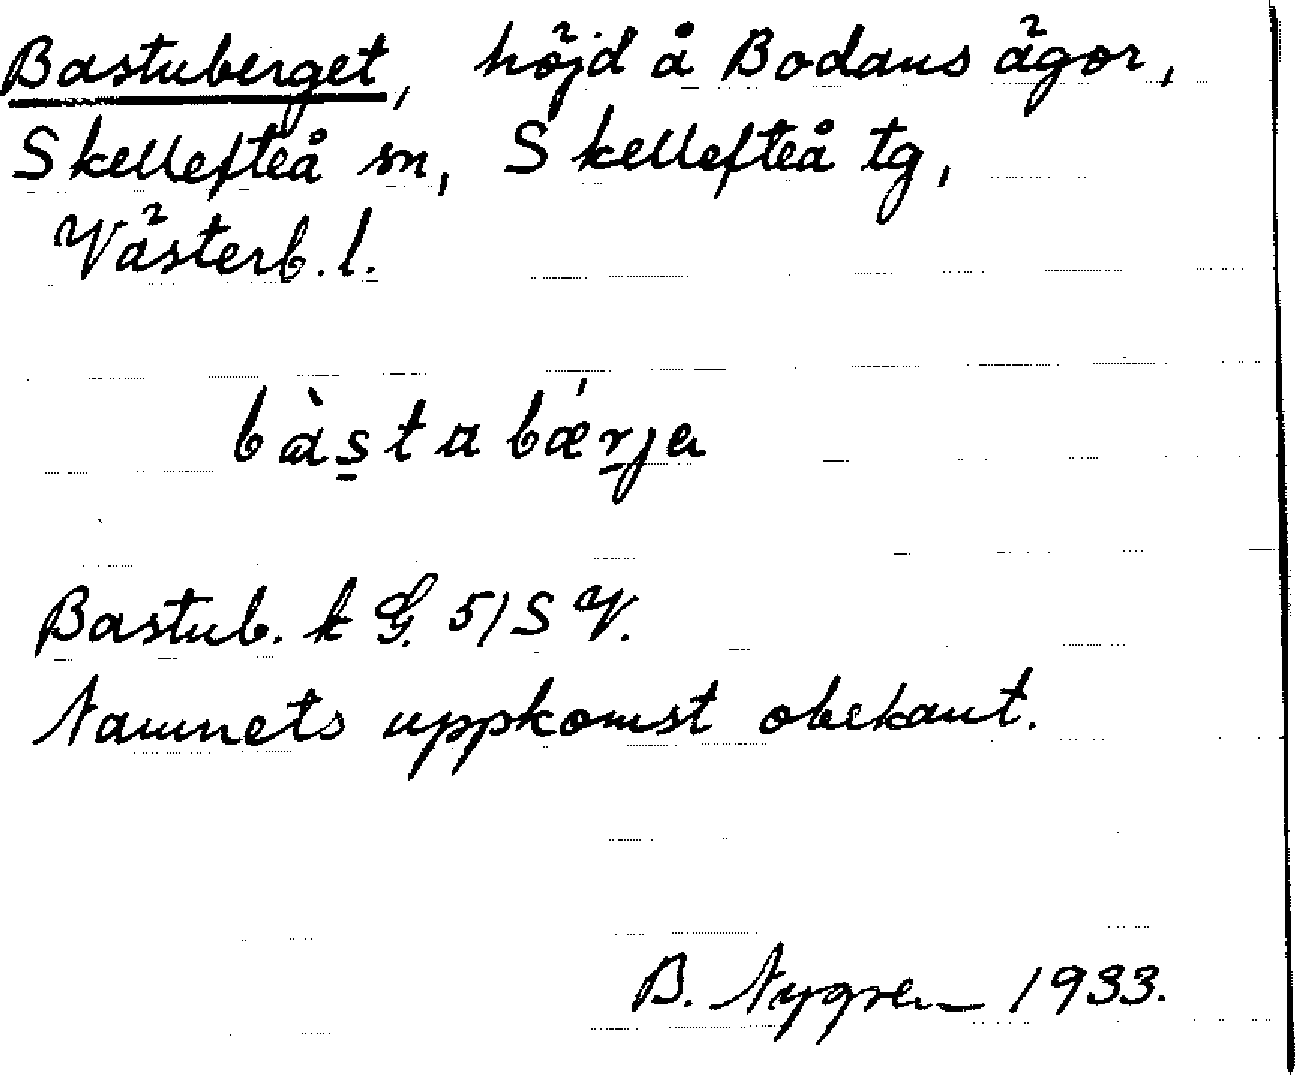 Bastuberget, höjd å Bodans ägor,
Skellefteå sn, Skellefteå tg,
Västerb. l.
bàstabǽrja
Bastub. k G. 51 S V.
Namnets uppkomst obekant.
B. Nygren 1933.